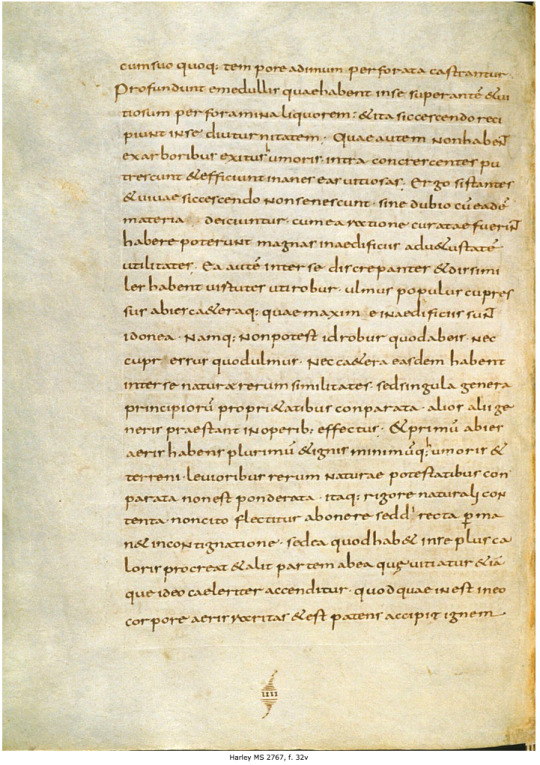 cum suo quoq; tempore ad imum perforata castrantur.
Profundunt e medullis quae habent in se superante & ui
tiosum per foramina liquorem; & ita siccescendo reci
piunt in se diuturnitatem. Quae autem non haben̄t
ex arboribus exitus umoris. intra concrercentes pu
trescunt & efficiunt inanes eas uitiosas. Ergo sistantes
& uiuae siccescendo non senescunt. sine dubio cū eadē
materia deiciuntur. cum ea ratione curatae fuerin̄t
habere poterunt magnas in aedificiis ad u&ustatē
utilitates. Ea autē inter se discrepantes & dissimi
les habent uirtutes uti robur. ulmus populus cupres
sus abies ca&eraq; quae maxim e in aedificiis sun̄t
idonea. Namq; non potest id robur quod abeis. nec
cupr essus quod ulmus. nec ca&era easdem habent
inter se naturae rerum similitates. sed singula genera
principiorū propri&atibus conparata. alios alii ge
neris praestant in operib; effectus. & primū abies
aeris habens plurimū & ignis minimūq; umoris &
terreni. leuioribus rerum naturae potestatibus con
parata non est ponderata. itaq; rigore naturali con
tenta. non cito flectitur ab onere sed d' recta p̄ma
n& in contignatione. sed ea quod hab& in se plus ca
loris procreat & alit partem ab ea quę uitiatur & iā
que ideo caeleriter accenditur. quod quae inest in eo
corpore aeris raritas & est patens accipit ignem
IIII
Harley MS 2767, f. 32v